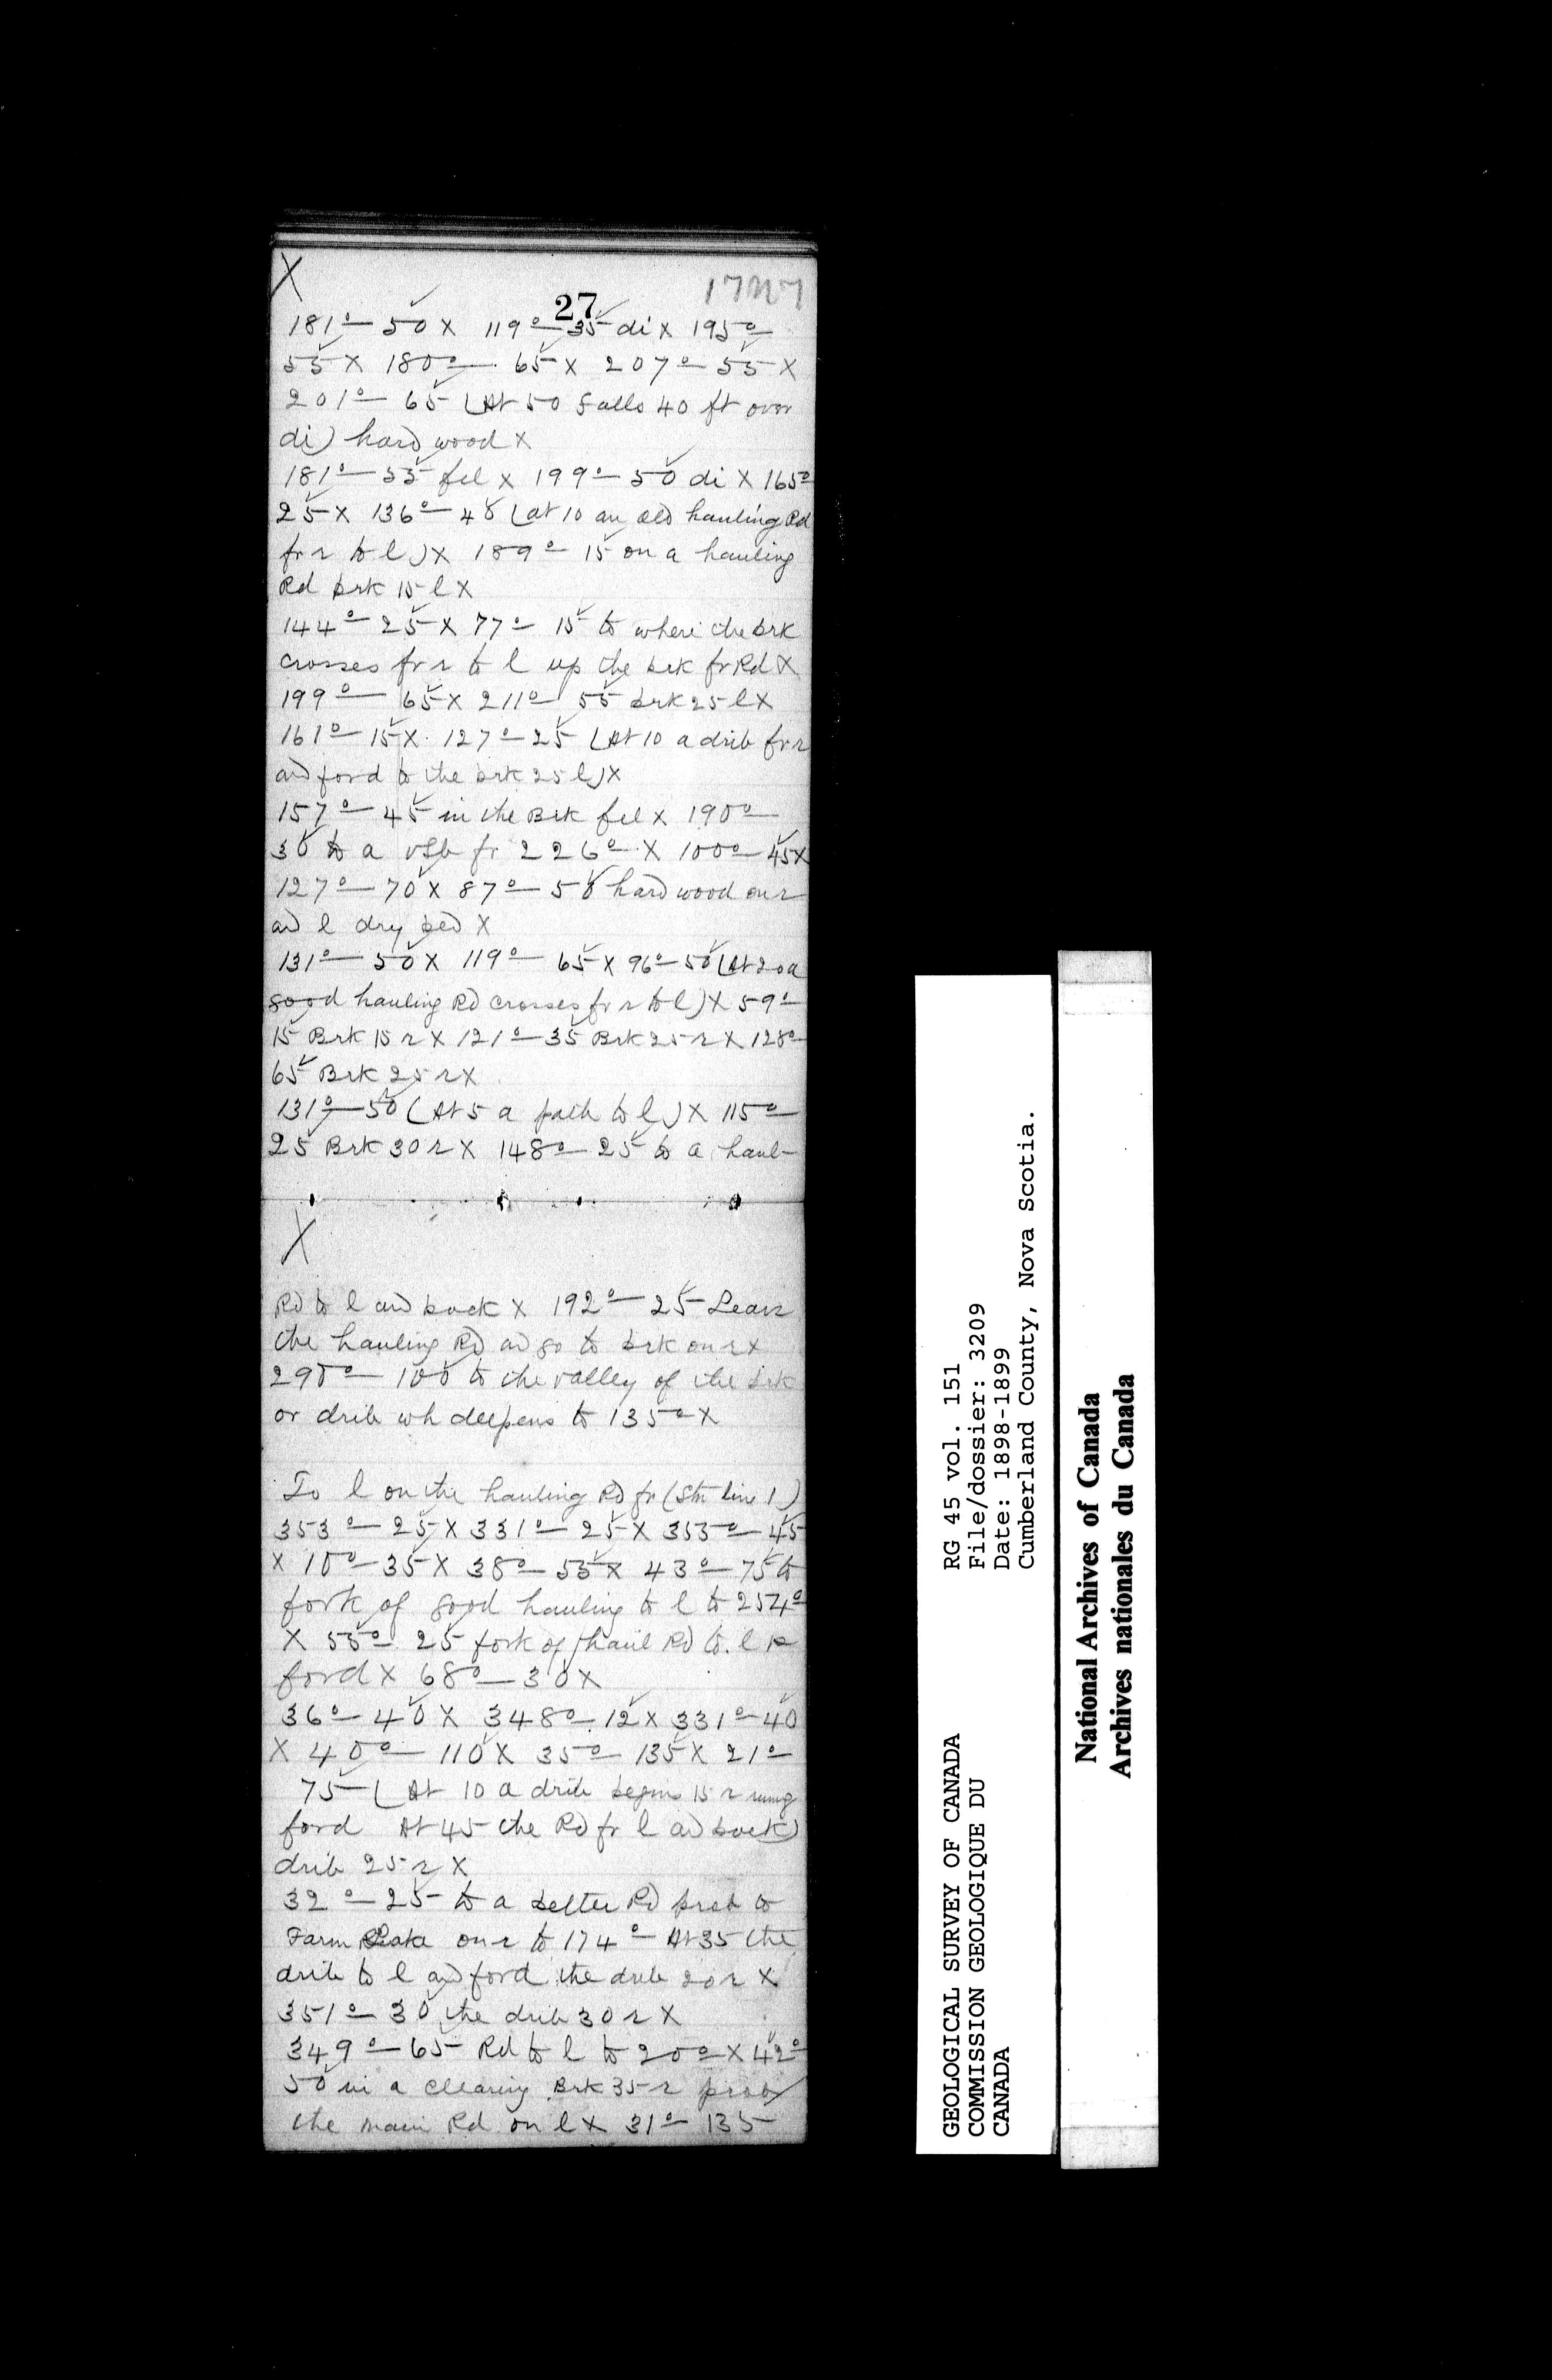 X 27 17N7
181° — 50 X 119° — 35 di X 195° —
55 X 180° — 65 X 207° — 55 X
201° — 65 (At 50 falls 40 ft over
di) hard wood X
181° — 55 fel X 199° — 50 di X 165° —
25 X 136° — 40 (at 10 an old hauling Rd
fr r to l) X 189° — 15 on a hauling
Rd brk 15 l X
144° — 25 X 77° — 15 to where the brk
crosses fr r to l up the brk fr Rd X
199° — 65 X 211° — 55 brk 25 l X
161° — 15 X 127° — 25 (At 10 a drib fr r
and ford to the brk 25 l) X
157° — 45 in the Brk fel X 190° —
30 to a vSb fr 226° — X 100° — 45 X
127° — 70 X 87° — 50 hard wood on r
and l dry bed X
131° — 50 X 119° — 65 X 96° — 50 (At 20 a
good hauling Rd crosses fr r to l) X 59° —
15 Brk 15 r X 121° — 35 Brk 25 r X 128° —
65 Brk 25 r X
131° — 50 (At 5 a path to l) X 115° —
25 Brk 30 r X 148° — 25 to a haul-
X
Rd to l and back X 192° — 25 Leave
the hauling Rd and go to brk on r X
290° — 100 to the valley of the brk
or drib wh deepens to 135° — X
To l on the hauling Rd fr (Stn line 1)
353° — 25 X 331° — 25 X 353° — 45
X 10° — 35 X 38° — 55 X 43° — 75 to
fork of good hauling to l to 254° —
X 55° — 25 fork of haul Rd to l
ford X 68° — 30 X
36° — 40 X 348° — 12 X 331° — 40
X 40° — 110 X 35° — 135 X 21° —
75 (At 10 a drib begins 15 r rung
ford At 45 the Rd fr l and back)
drib 25 r X
32° — 25 to a better Rd prob to
Farm Lake on r to 174° — At 35 the
drib to l and ford the drib 20 r X
351° — 30 the drib 30 r X
349° — 65 Rd to l to 200° — X 42° —
50 in a clearing Brk 35 r prob
the main Rd on l X 31° — 135
GEOLOGICAL SURVEY OF CANADA
COMMISSION GEOLOGIQUE DU
CANADA
RG 45 vol. 151
File/dossier: 3209
Date: 1898-1899
Cumberland County, Nova Scotia.
National Archives of Canada
Archives nationales du Canada